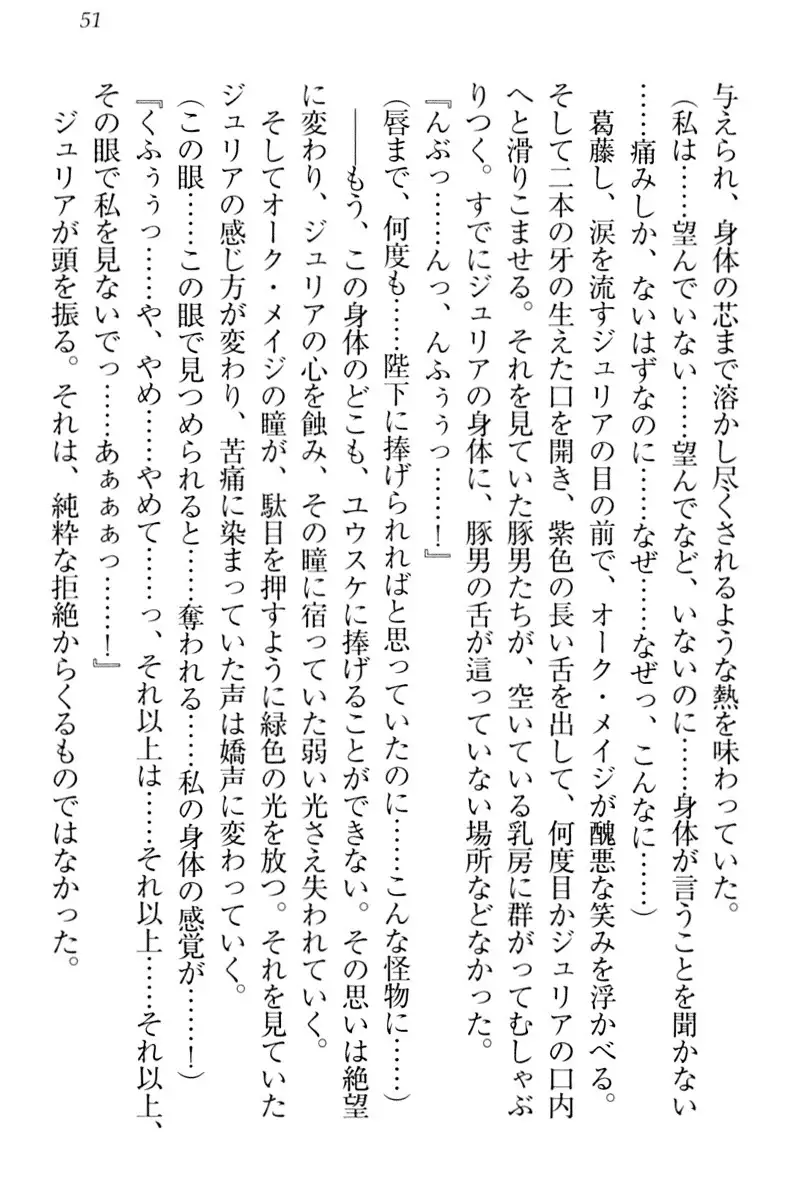 51
与えられ、身体の芯まで溶かし尽くされるような熱を味わっていた。
（私は……望んでいない……望んでなど、いないのに……身体が言うことを聞かない
……痛みしか、ないはずなのに……なぜ……なぜっ、こんなに……）
葛藤し、涙を流すジュリアの目の前で、オーク・メイジが醜悪な笑みを浮かべる。
そして二本の牙の生えた口を開き、紫色の長い舌を出して、何度目かジュリアの口内
へと滑りこませる。それを見ていた豚男たちが、空いている乳房に群がってむしゃぶ
りつく。すでにジュリアの身体に、豚男の舌が這っていない場所などなかった。
『んぶっ……んっ、んふぅぅっ……！』
（唇まで、何度も……陛下に捧げられればと思っていたのに……こんな怪物に……）
――もう、この身体のどこも、ユウスケに捧げることができない。その思いは絶望
に変わり、ジュリアの心を蝕み、その瞳に宿っていた弱い光さえ失われていく。
そしてオーク・メイジの瞳が、駄目を押すように緑色の光を放つ。それを見ていた
ジュリアの感じ方が変わり、苦痛に染まっていた声は嬌声に変わっていく。
（この眼……この眼で見つめられると……奪われる……私の身体の感覚が……！）
『くふぅぅっ……や、やめ……やめて……っ、それ以上は……それ以上……それ以上、
その眼で私を見ないでっ……あぁぁぁっ……！』
ジュリアが頭を振る。それは、純粋な拒絶からくるものではなかった。